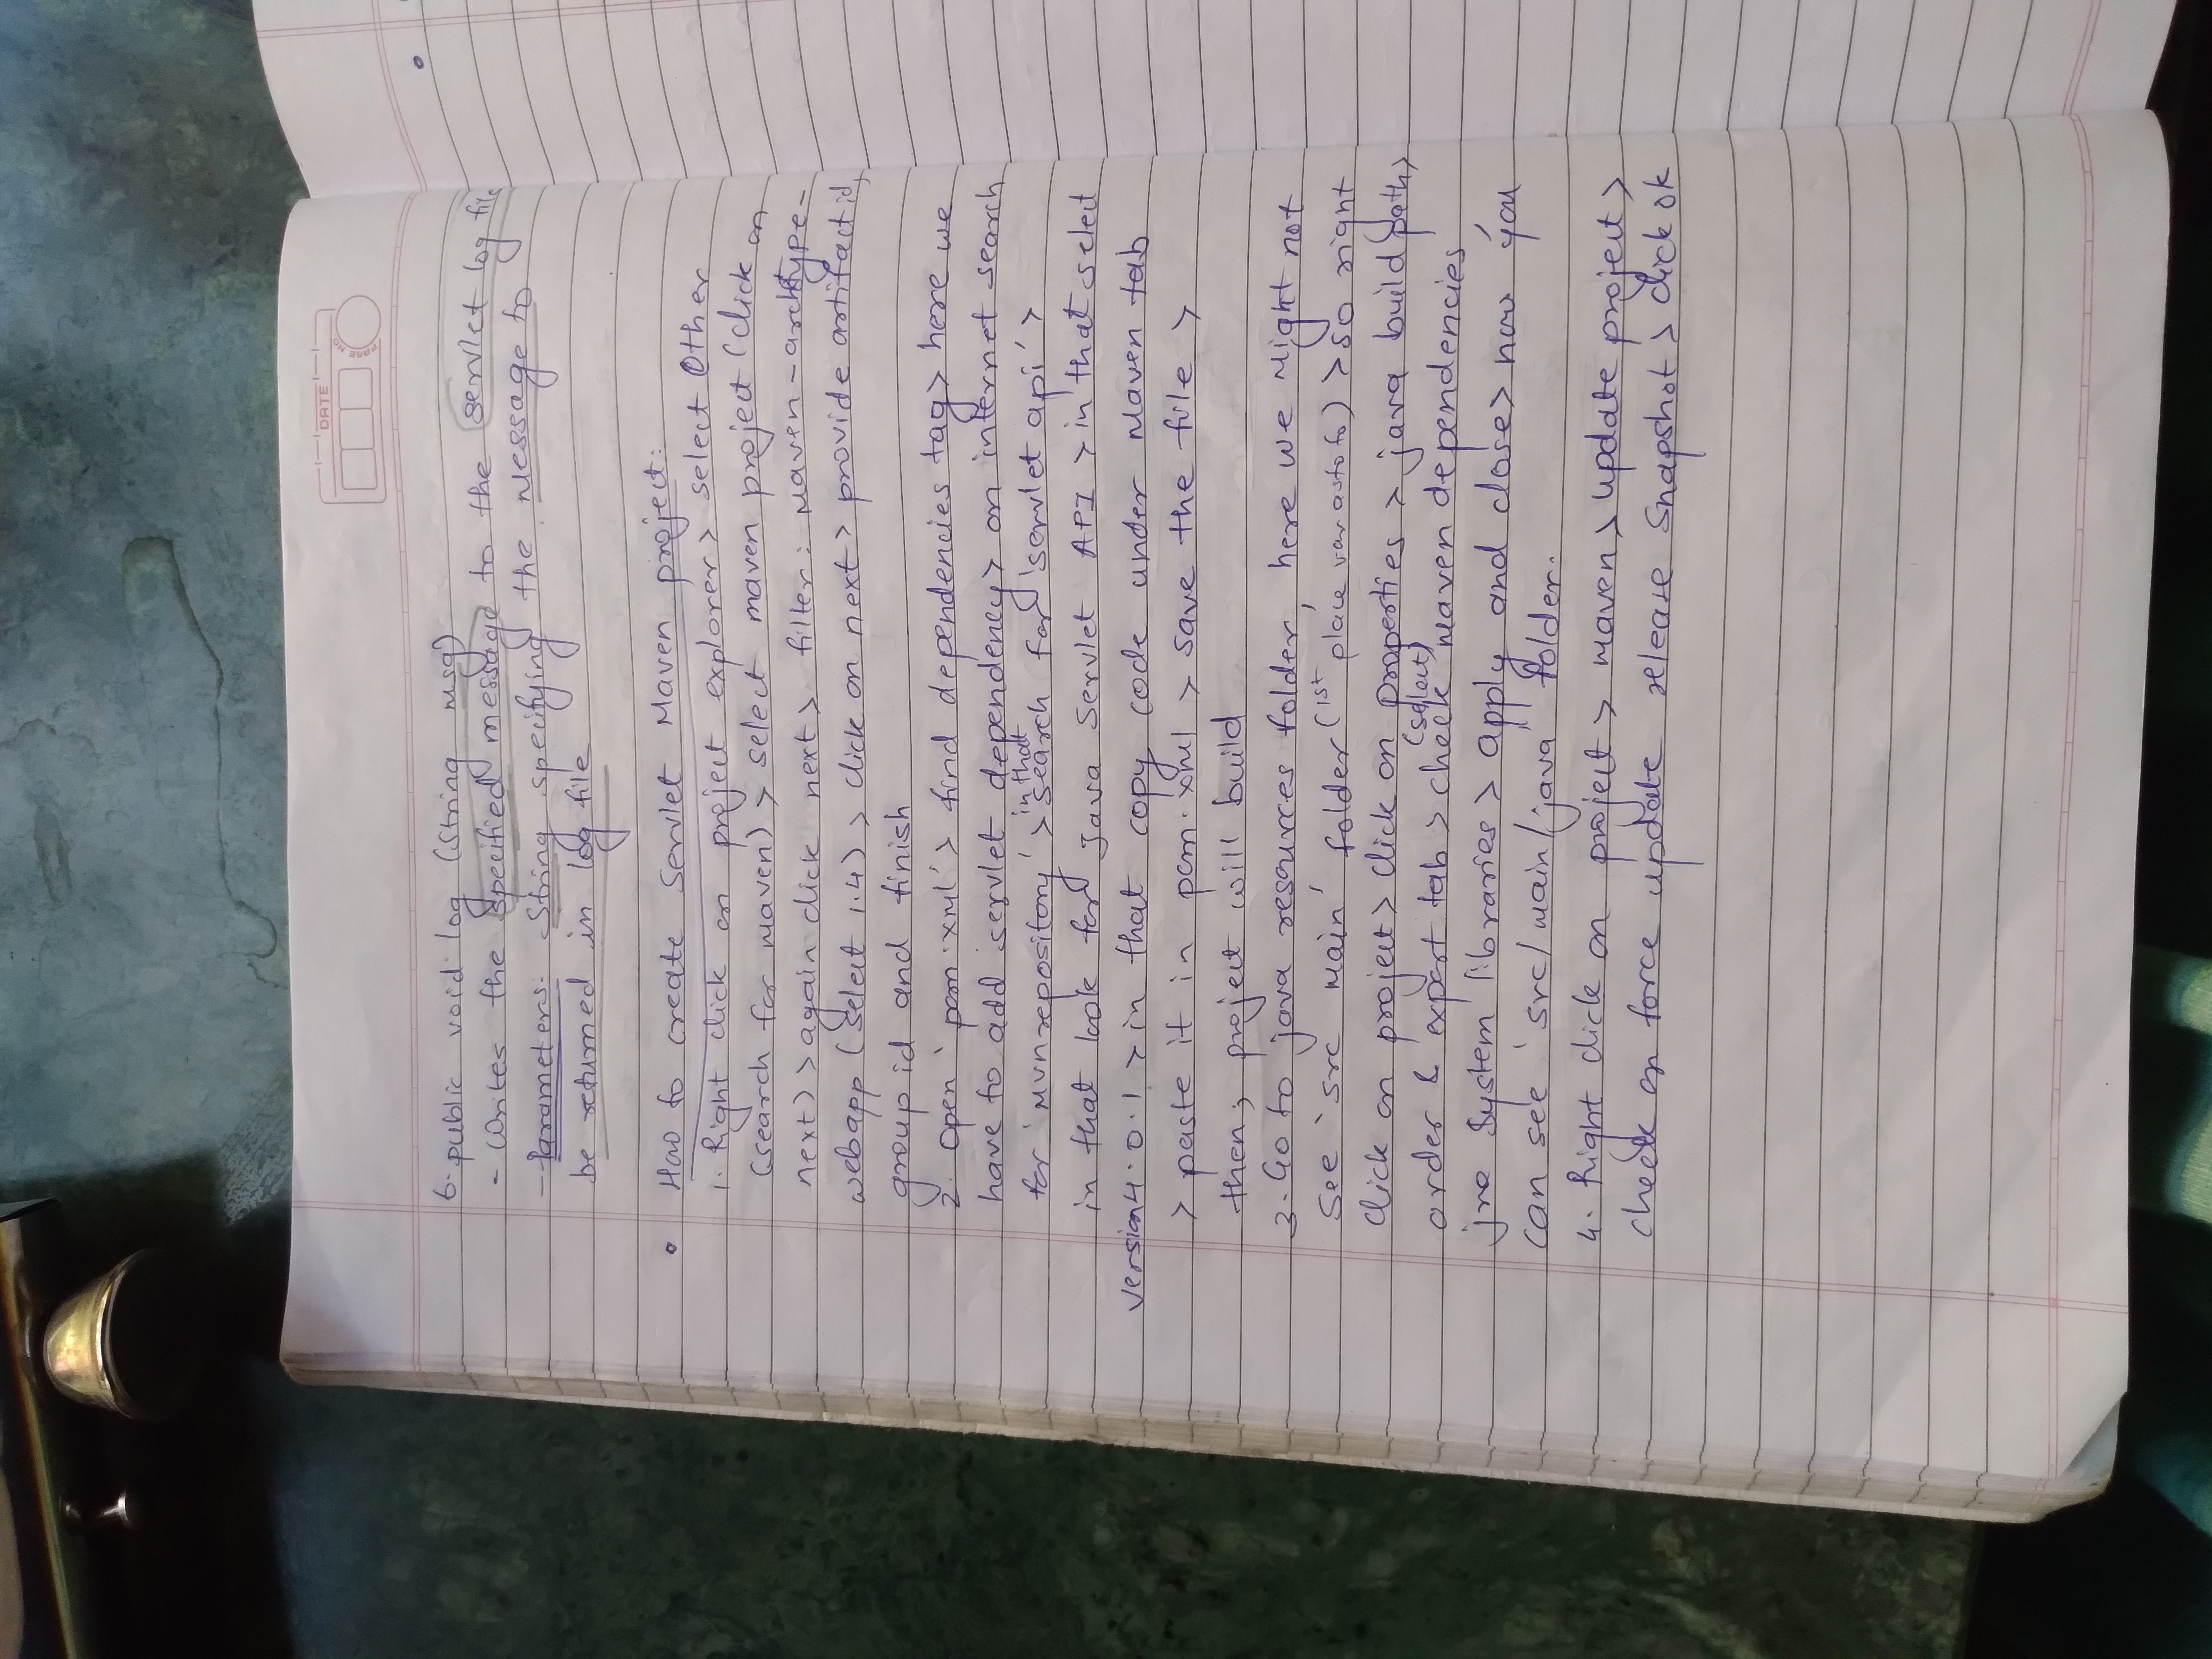 DATE
PAGE NO
6. public void log (String msg)
- Writes the specified message to the servlet log file
- Parameters: String specifying the message to
be returned in log file
• How to create Servlet Maven project:
1. Right click on project explorer > select Other
(search for maven) > select maven project (click on
next) > again click next > filter: maven-archtype-
webapp (select 1.4) > click on next > provide artifact id,
group id and finish
2. Open 'pom.xml' > find dependencies tag > here we
have to add servlet dependency > on internet search
for 'mvnrepository' > in that search for 'servlet api' >
in that look for Java Servlet API > in that select
version 4.0.1 > in that copy code under Maven tab
> paste it in pom.xml > save the file >
then, project will build
3. Go to java resources folder, here we might not
see 'src main' folder (1st place var) > so right
click on project > click on properties > java build path >
order & export tab > check (select) maven dependencies
jre system libraries > apply and close > now you
can see 'src/main/java' folder.
4. Right click on project > maven > update project >
check on force update release snapshot > click ok